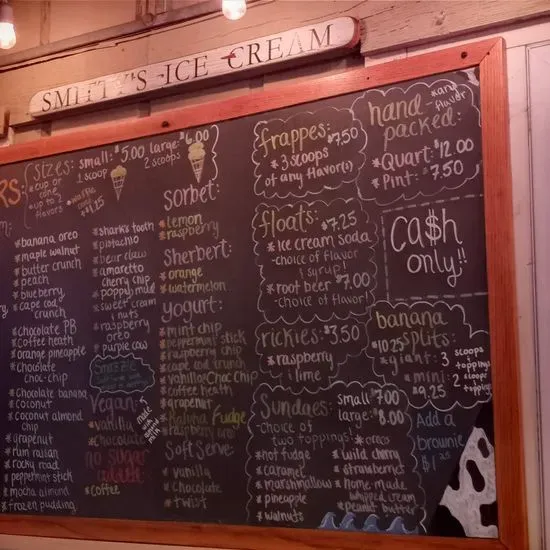 SMITTY'S ICE CREAM
RS:
sizes: small: $5.00 large: $6.00
1 scoop
2 scoops
*cup or
cone
*up to 2
flavors
*waffle
cone
+$1.25
*banana oreo
*maple walnut
*butter crunch
*peach
*blueberry
*cape cod
crunch
*chocolate PB
*coffee heath
*orange pineapple
*chocolate
choc-chip
*chocolate banana
*coconut
*coconut almond
chip
*grapenut
*rum raisan
*rocky road
*peppermint stick
*mocha almond
*frozen pudding
*shark's tooth
*pistachio
*bear claw
*amaretto
cherry chip
*poppy mud
*sweet cream
n nuts
*raspberry
oreo
*purple cow
Vegan:
*vanilla
*chocolate
made
almond
milk
no sugar
added:
*coffee
sorbet:
*lemon
*raspberry
sherbert:
*orange
*watermelon
yogurt:
*mint chip
*peppermint stick
*raspberry chip
*cape cod crunch
*vanilla choc chip
*coffee heath
*grapenut
*Kahlua Fudge
*raspberry oreo
Soft Serve:
*vanilla
*chocolate
*twist
frappes: $7.50
*3 scoops
of any flavor(s)
floats: $7.25
*ice cream soda
-choice of flavor
& syrup!
*root beer $7.00
-choice of flavor!
rickies: $3.50
*raspberry
*lime
Sundaes: small $7.00
large: $8.00
-choice of
two toppings:
*hot fudge
*caramel
*marshmallow
*pineapple
*walnuts
*oreos
*wild cherry
*strawberry
*home made
whipped cream
*peanut butter
hand
packed:
*any
flavor
*Quart: $12.00
*Pint: $7.50
ca$h
only!!
banana
splits:
$10.25
*giant: 3 scoops
3 toppings
*mini: 2 scoops
2 toppings
Add a
brownie
$1.25